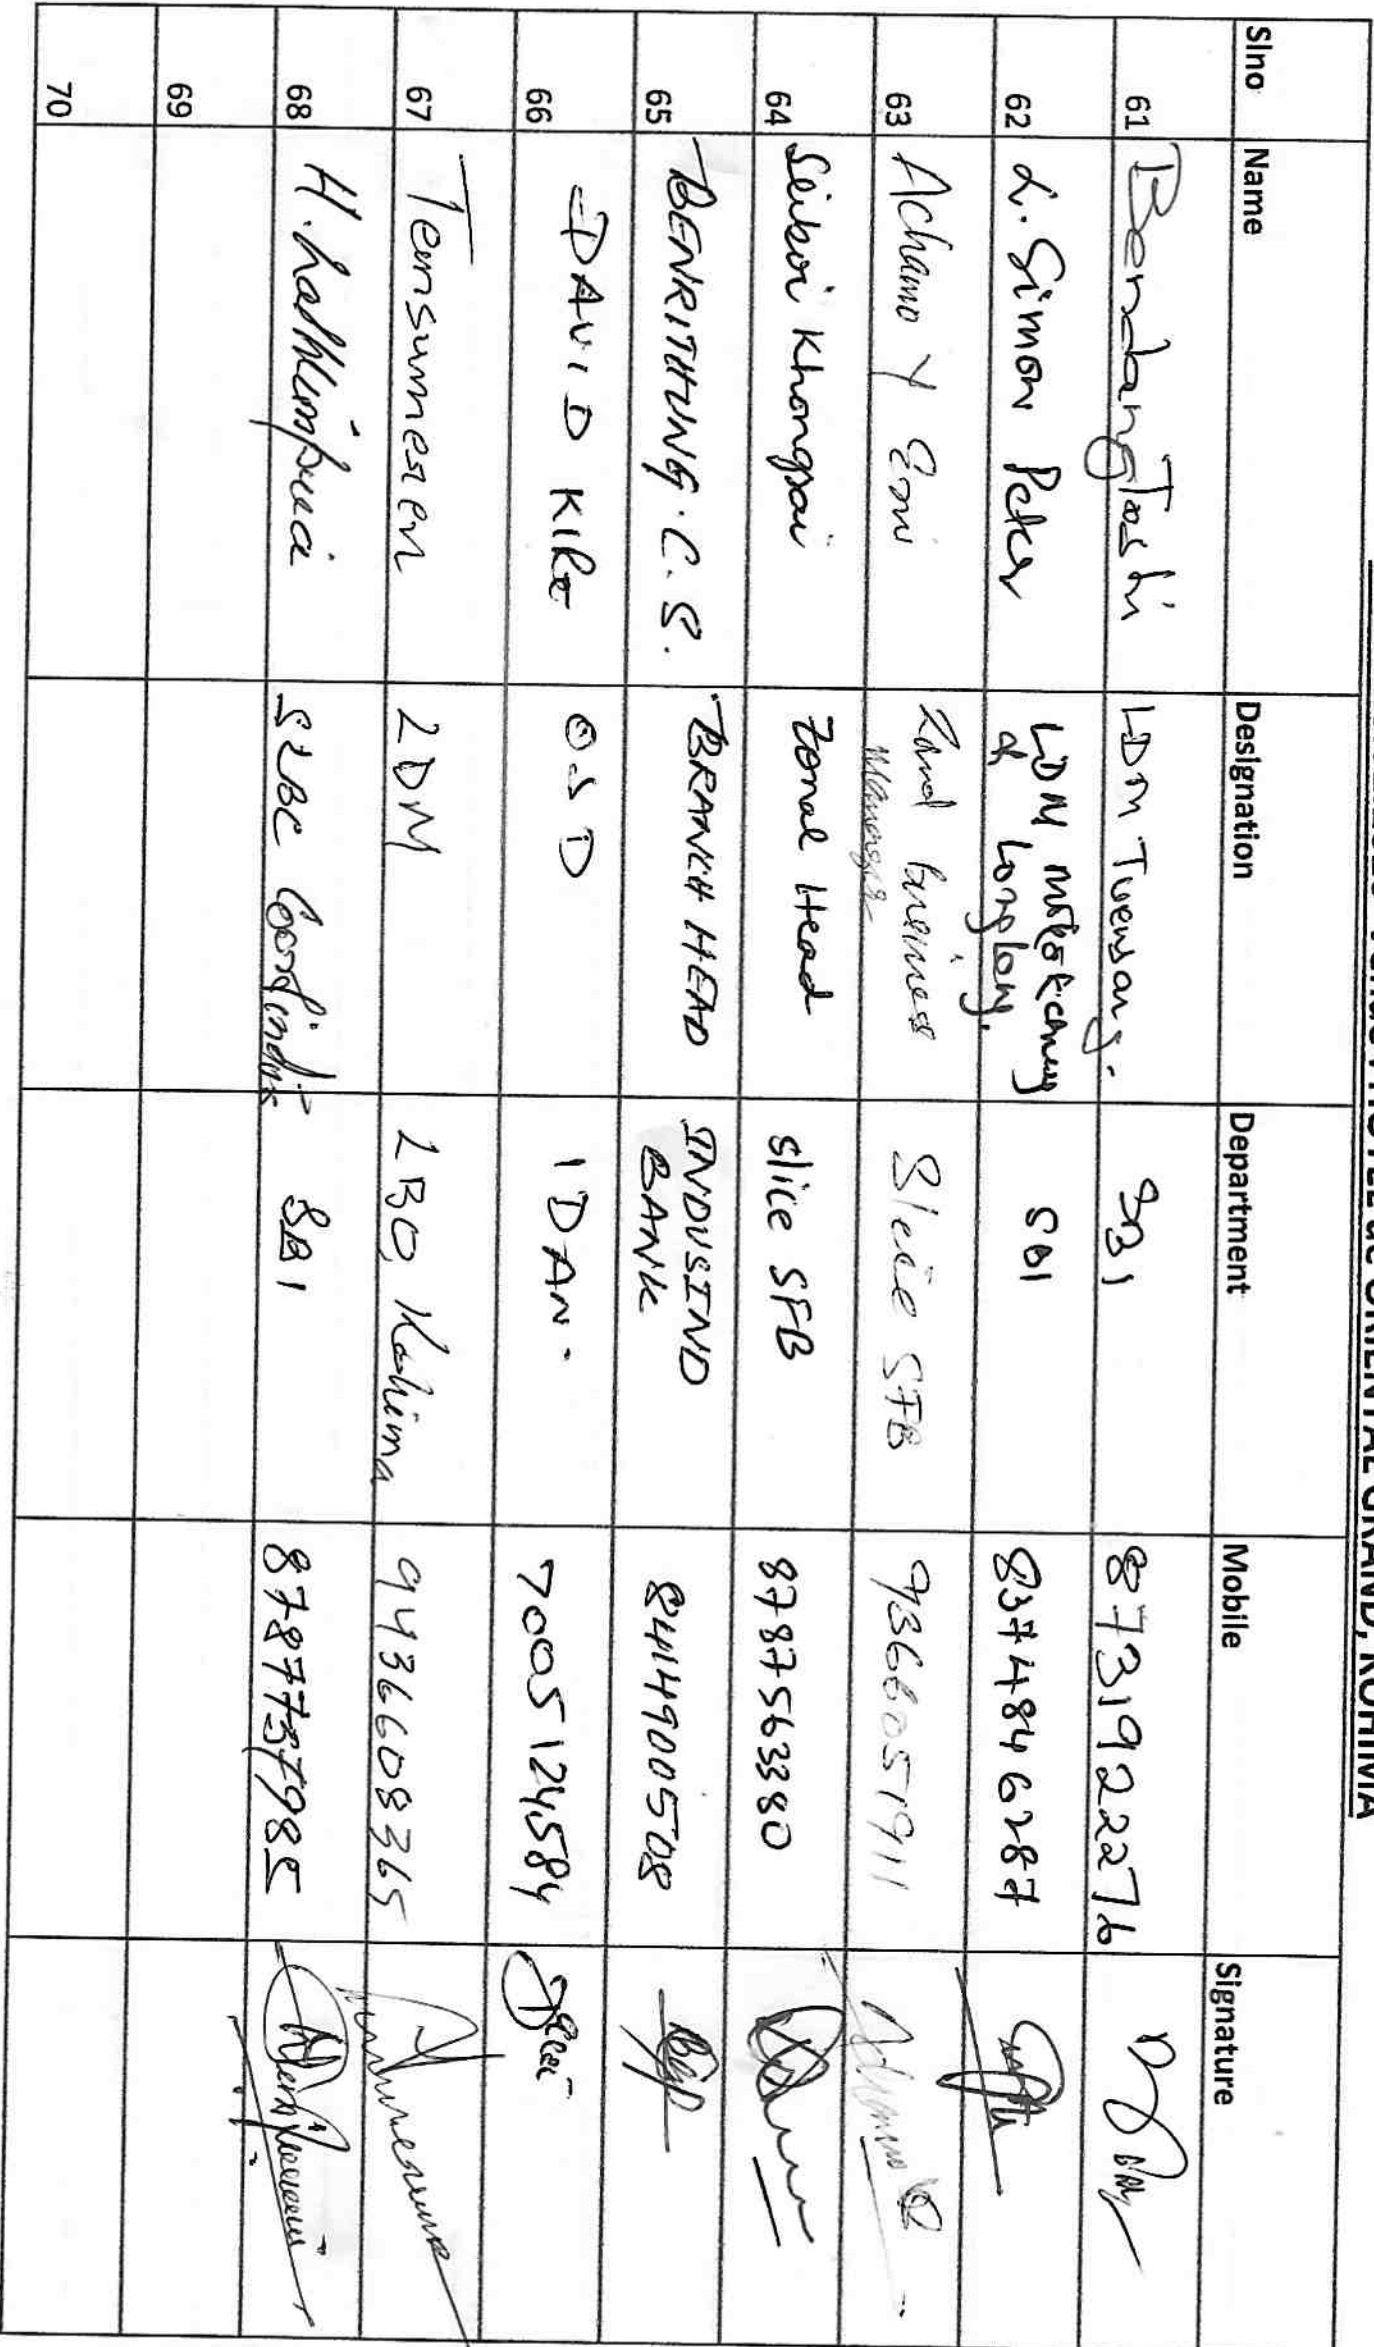 Venue : HOTEL de ORIENTAL GRAND, KOHIMA
Slno Name Designation Department Mobile Signature
61 BendangToshi LDM Tuensang. SBI 8731922276
62 L. Simon Peter LDM, Mokokchung & Longleng. SBI 8374846287
63 Achamo Y Business Manager Slice SFB 9366051911
64 Seiboi Khongsai Zonal Head slice SFB 8787563380
65 BENRITHUNG. C. S. BRANCH HEAD INDUSIND BANK 8414900508
66 DAVID KIRE OSD IDAN. 7005124584
67 Temsumeren LDM LBO, Kohima 9436608365
68 H. SLBC Coordinator SBI 8787737985
69
70